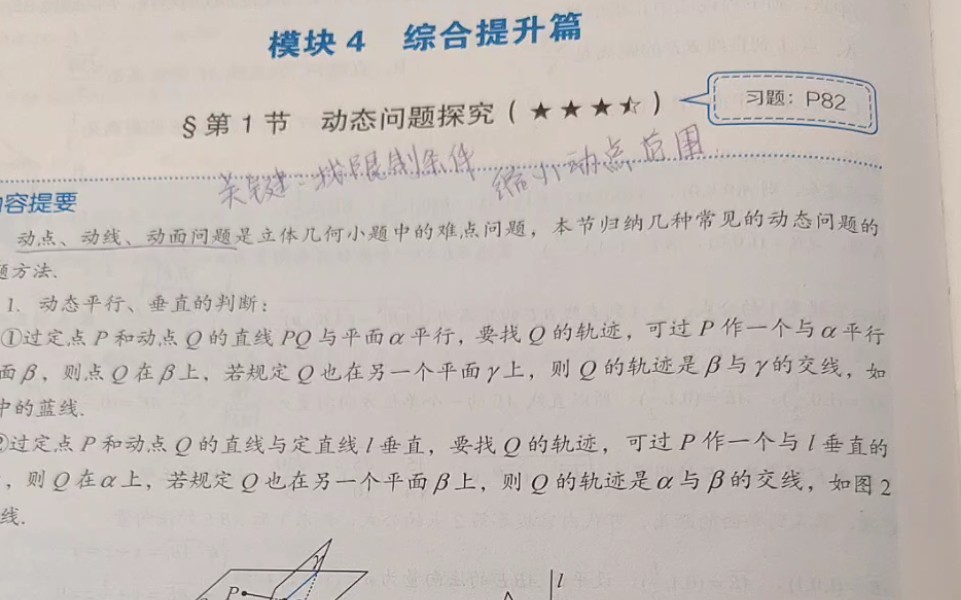 模块4 综合提升篇
§第1节 动态问题探究（★★★☆）
习题：P82
关键：找限制条件 缩小动点范围
内容提要
动点、动线、动面问题是立体几何小题中的难点问题，本节归纳几种常见的动态问题的
题方法.
1. 动态平行、垂直的判断：
①过定点P和动点Q的直线PQ与平面α平行，要找Q的轨迹，可过P作一个与α平行
面β，则点Q在β上，若规定Q也在另一个平面γ上，则Q的轨迹是β与γ的交线，如
中的蓝线.
②过定点P和动点Q的直线与定直线l垂直，要找Q的轨迹，可过P作一个与l垂直的
，则Q在α上，若规定Q也在另一个平面β上，则Q的轨迹是α与β的交线，如图2
线.
γ
P
l